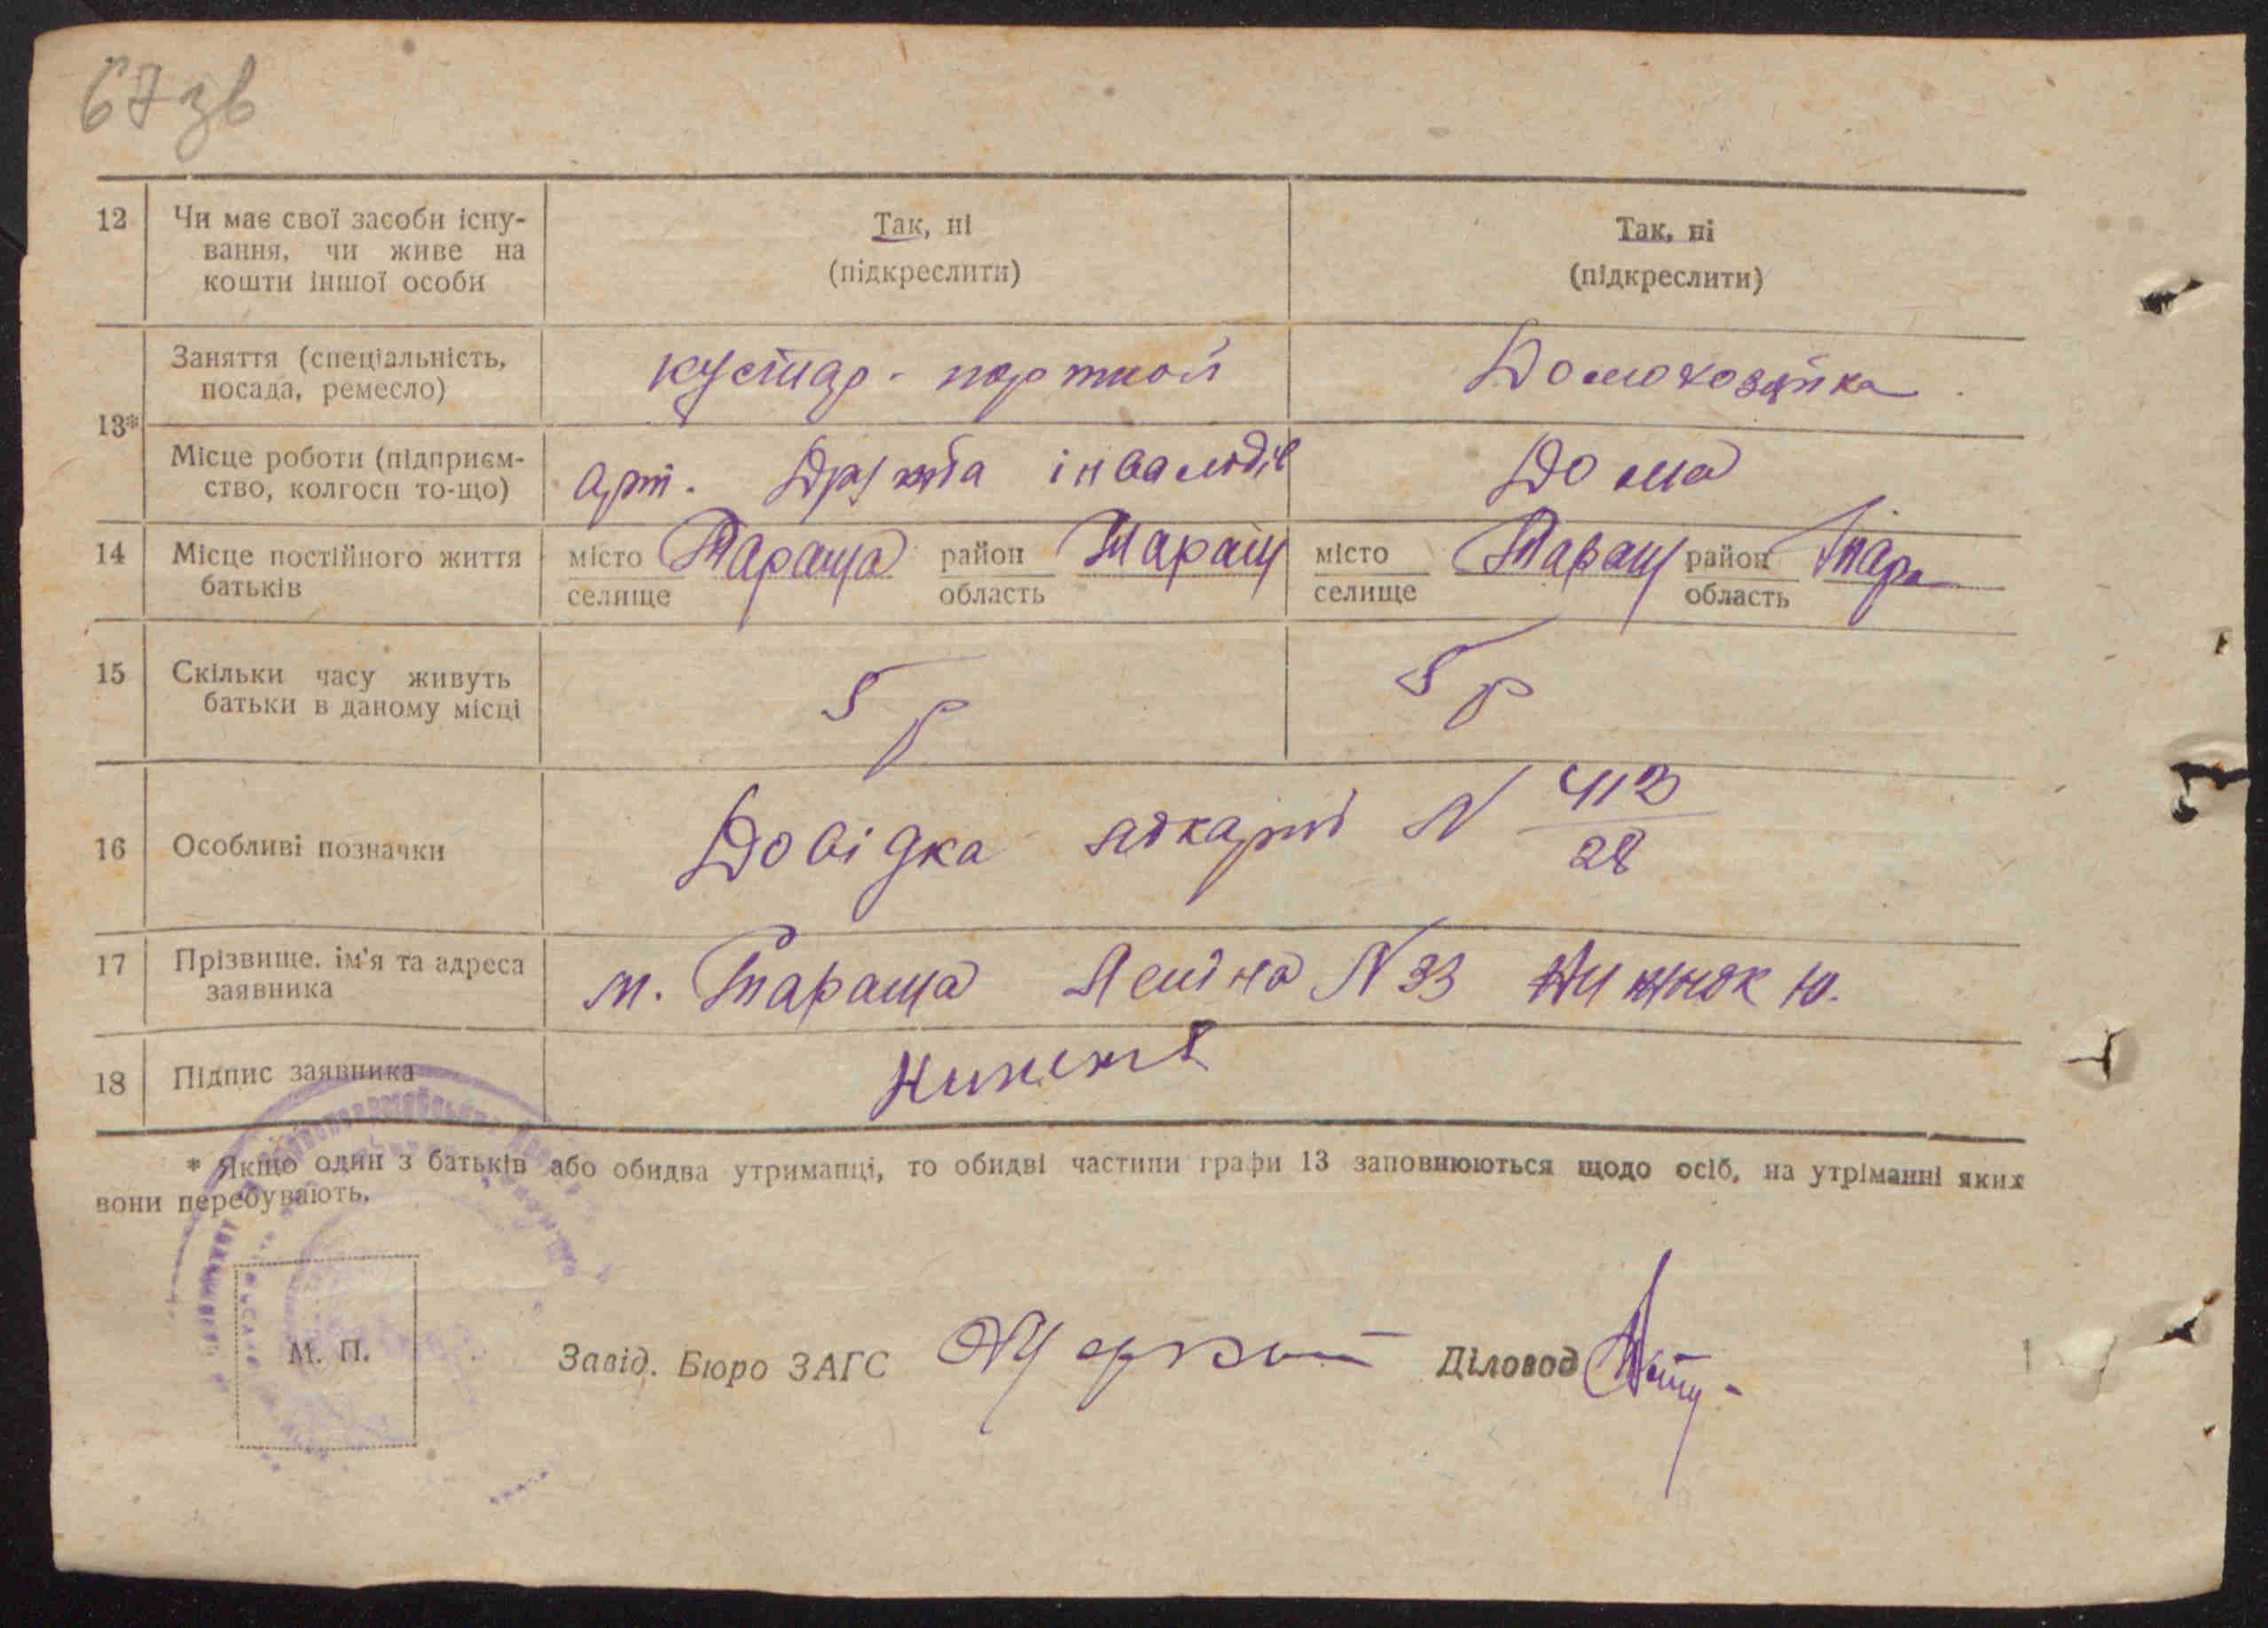 67 зв
12 Чи має свої засоби існу-
вання, чи живе на
кошти іншої особи
Так, ні
(підкреслити)
Так, ні
(підкреслити)
13*
Заняття (спеціальність,
посада, ремесло)
кустар - портной
Домохозяйка
Місце роботи (підприєм-
ство, колгосп то-що)
Арт. Дружба інвалідів
Дома
14 Місце постійного життя
батьків
місто Тараща район Таращ
селище область
місто Таращ район Тара
селище область
15 Скільки часу живуть
батьки в даному місці
5 р
5 р
16 Особливі позначки
Довідка лікарні N 413
28
17 Прізвище, ім'я та адреса
заявника
м. Тараща Леніна N 33 Нижник Ю.
18 Підпис заявника
* Якщо один з батьків або обидва утриманці, то обидві частини графи 13 заповнюються щодо осіб, на утріманні яких
вони перебувають.
М. П.
Завід. Бюро ЗАГС
Діловод